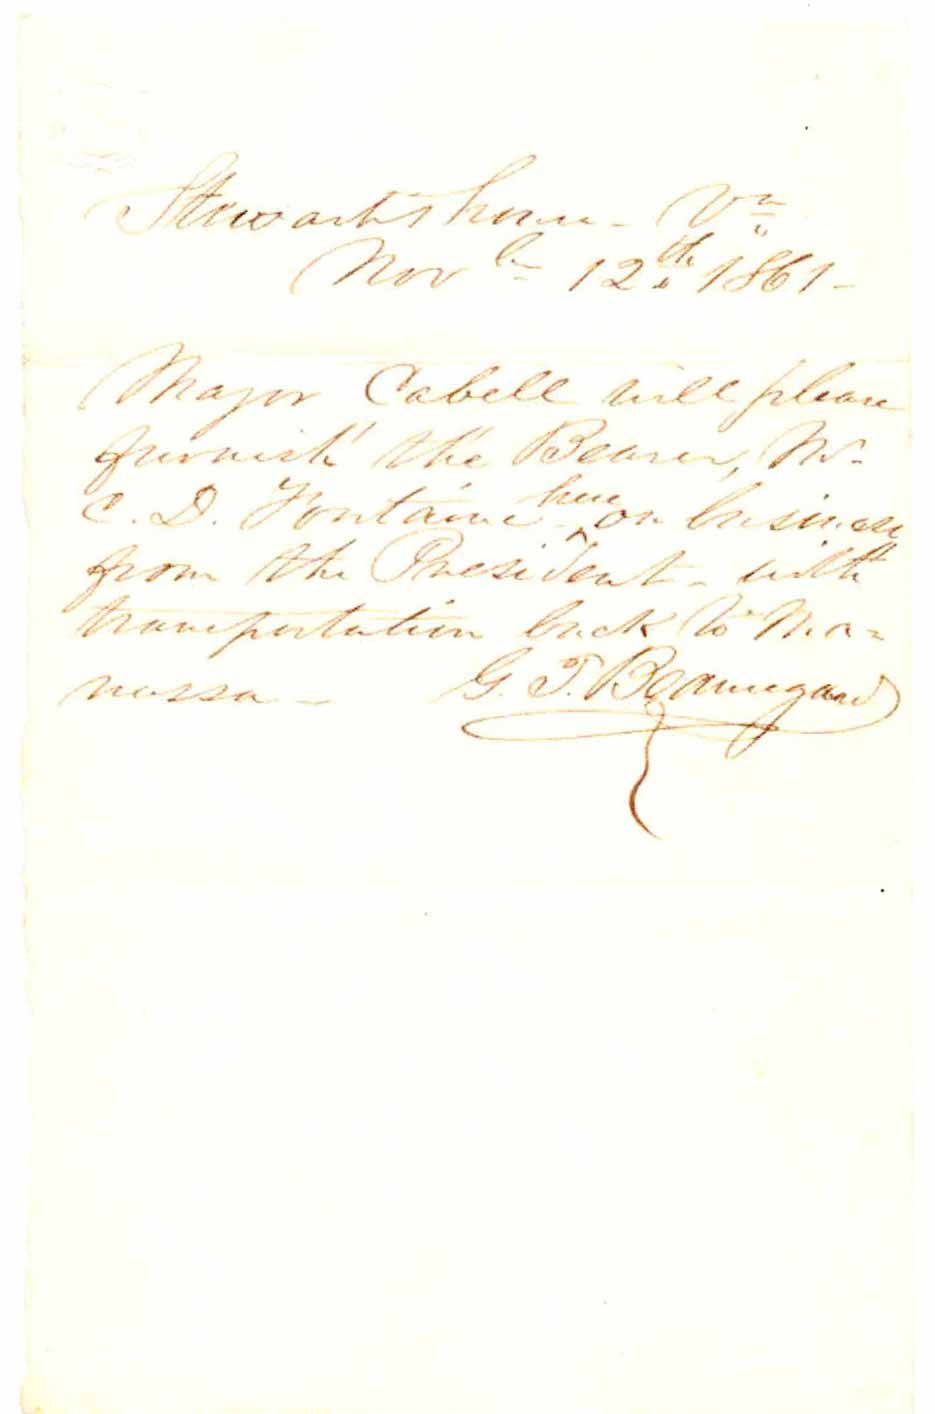 Stewart's house - Va
Novbr 12th 1861 -
Major Cabell will please
furnish the Bearer, Mr.
C. D. Fontaine - here on business
from the President - with
transportation back to Ma-
nassa - G. T. Beauregard